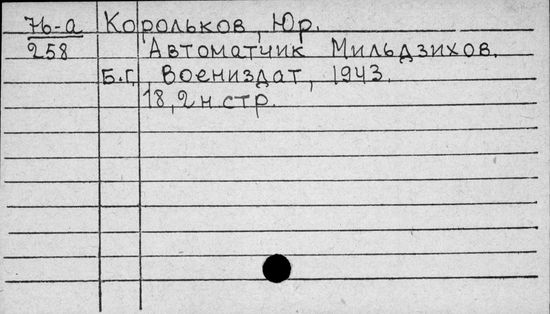 76-а Корольков, Юр.
258 Автоматчик Мильдзихов.
Б.г, Воениздат, 1943.
18, 2 н. стр.